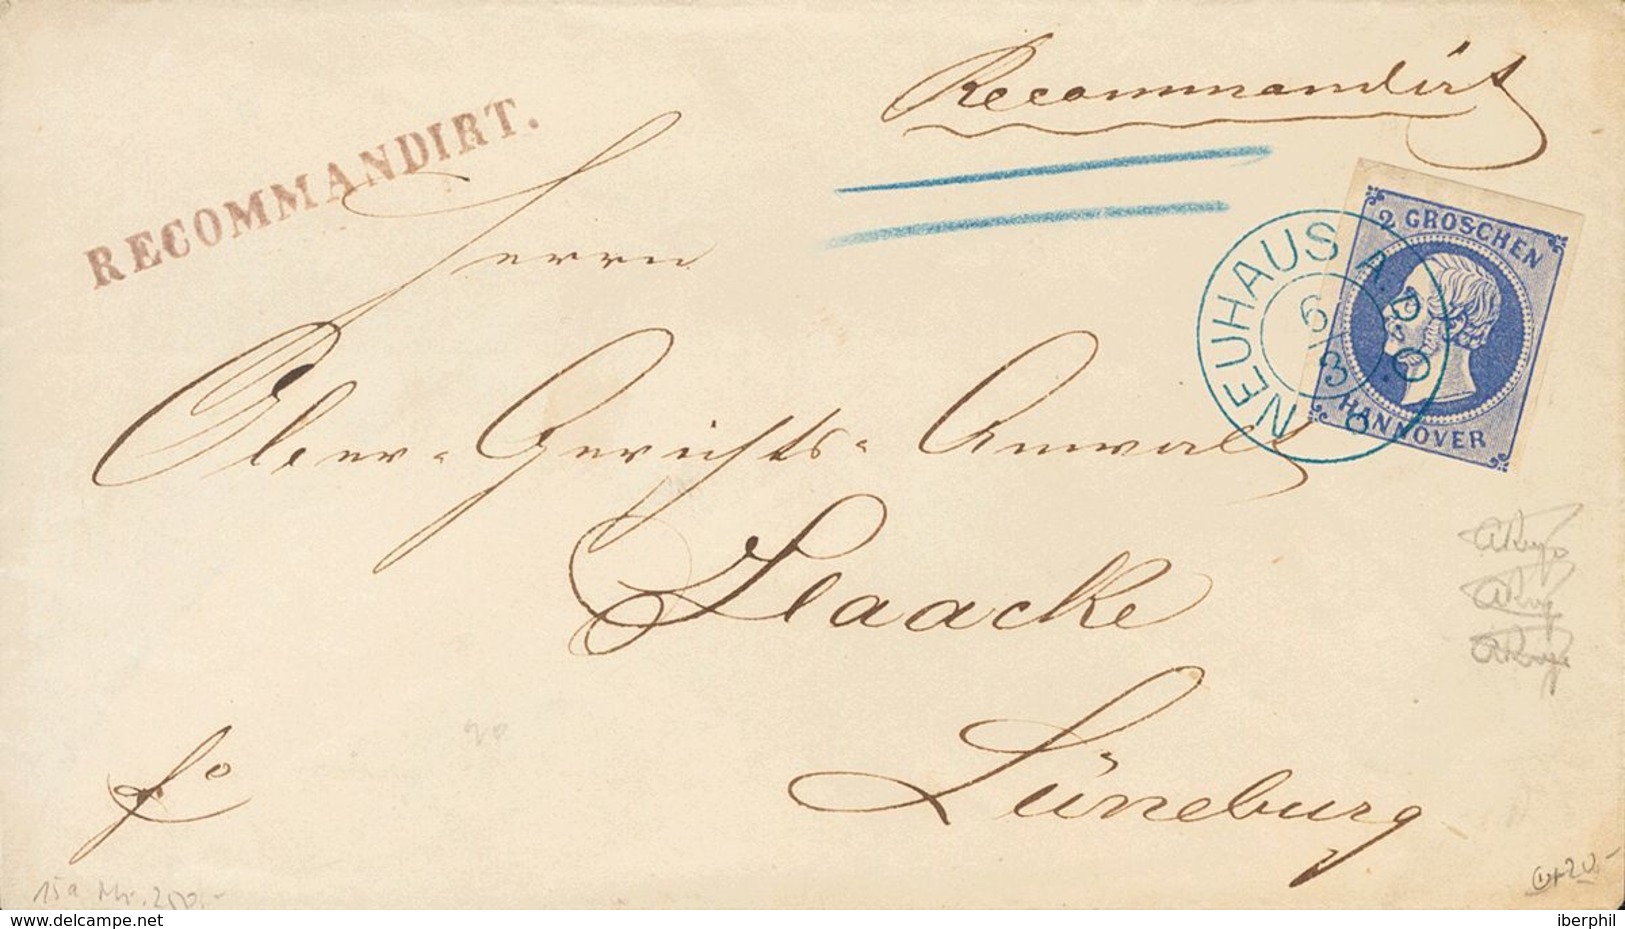 Recommandirt
RECOMMANDIRT.
2 GROSCHEN
HANNOVER
NEUHAUS A.D.O.
6
3
Herrn
Ober-Gerichts-Anwalt
Haacke
Lüneburg
fo
20
15a Mi. 250.-
20.-
www.delcampe.net
iberphil